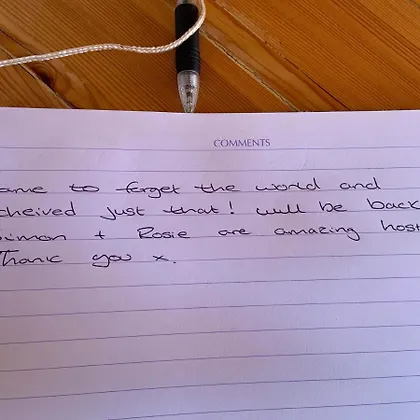 COMMENTS
ame to forget the world and
cheived just that! will be back
Simon + Rosie are amazing host
Thank you x.